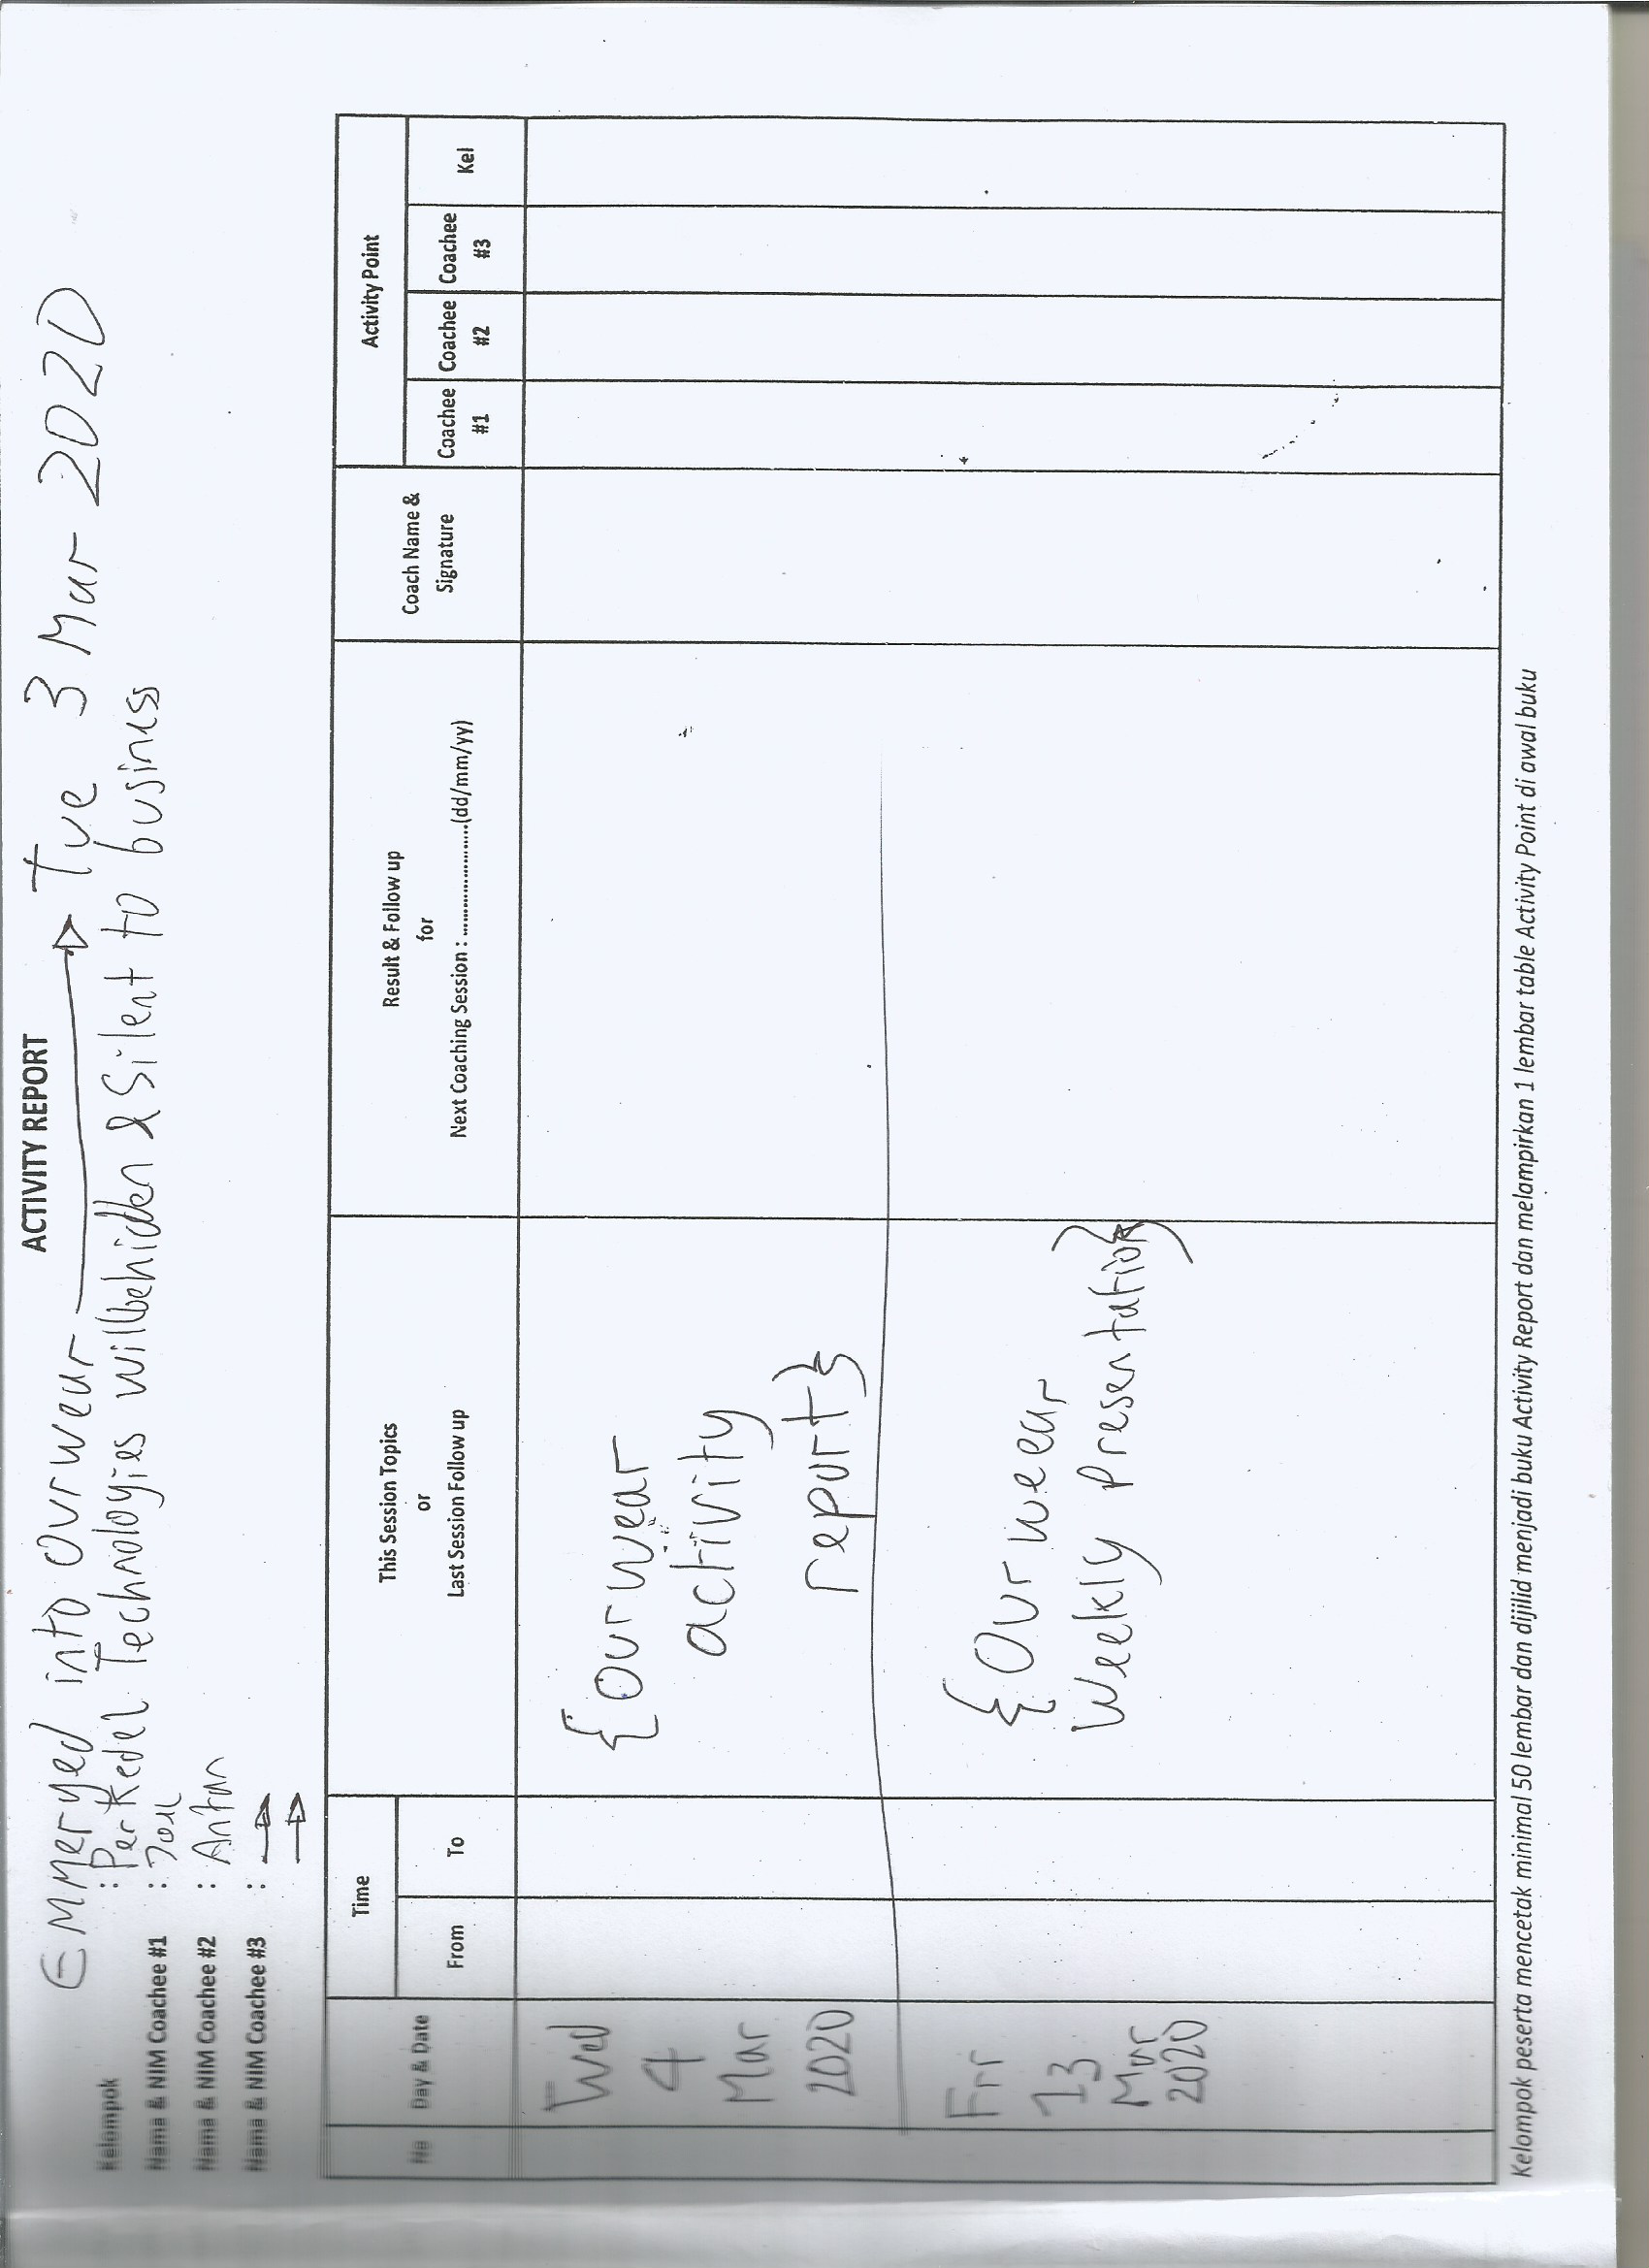 ACTIVITY REPORT
Emmerged into ourwear → Tue 3 Mar 2020
Kelompok : Perkedel Technologies will be hidden & Silent to business
Nama & NIM Coachee #1 : Joel
Nama & NIM Coachee #2 :
Nama & NIM Coachee #3 : →
→
No Day & Date Time This Session Topics or Last Session Follow up Result & Follow up for Next Coaching Session : ........................(dd/mm/yy) Coach Name & Signature Activity Point
From To Coachee #1 Coachee #2 Coachee #3 Kel
Wed 4 Mar 2020 {ourwear activity report}
Fri 13 Mar 2020 {Ourwear Weekly Presentation}
Kelompok peserta mencetak minimal 50 lembar dan dijilid menjadi buku Activity Report dan melampirkan 1 lembar table Activity Point di awal buku